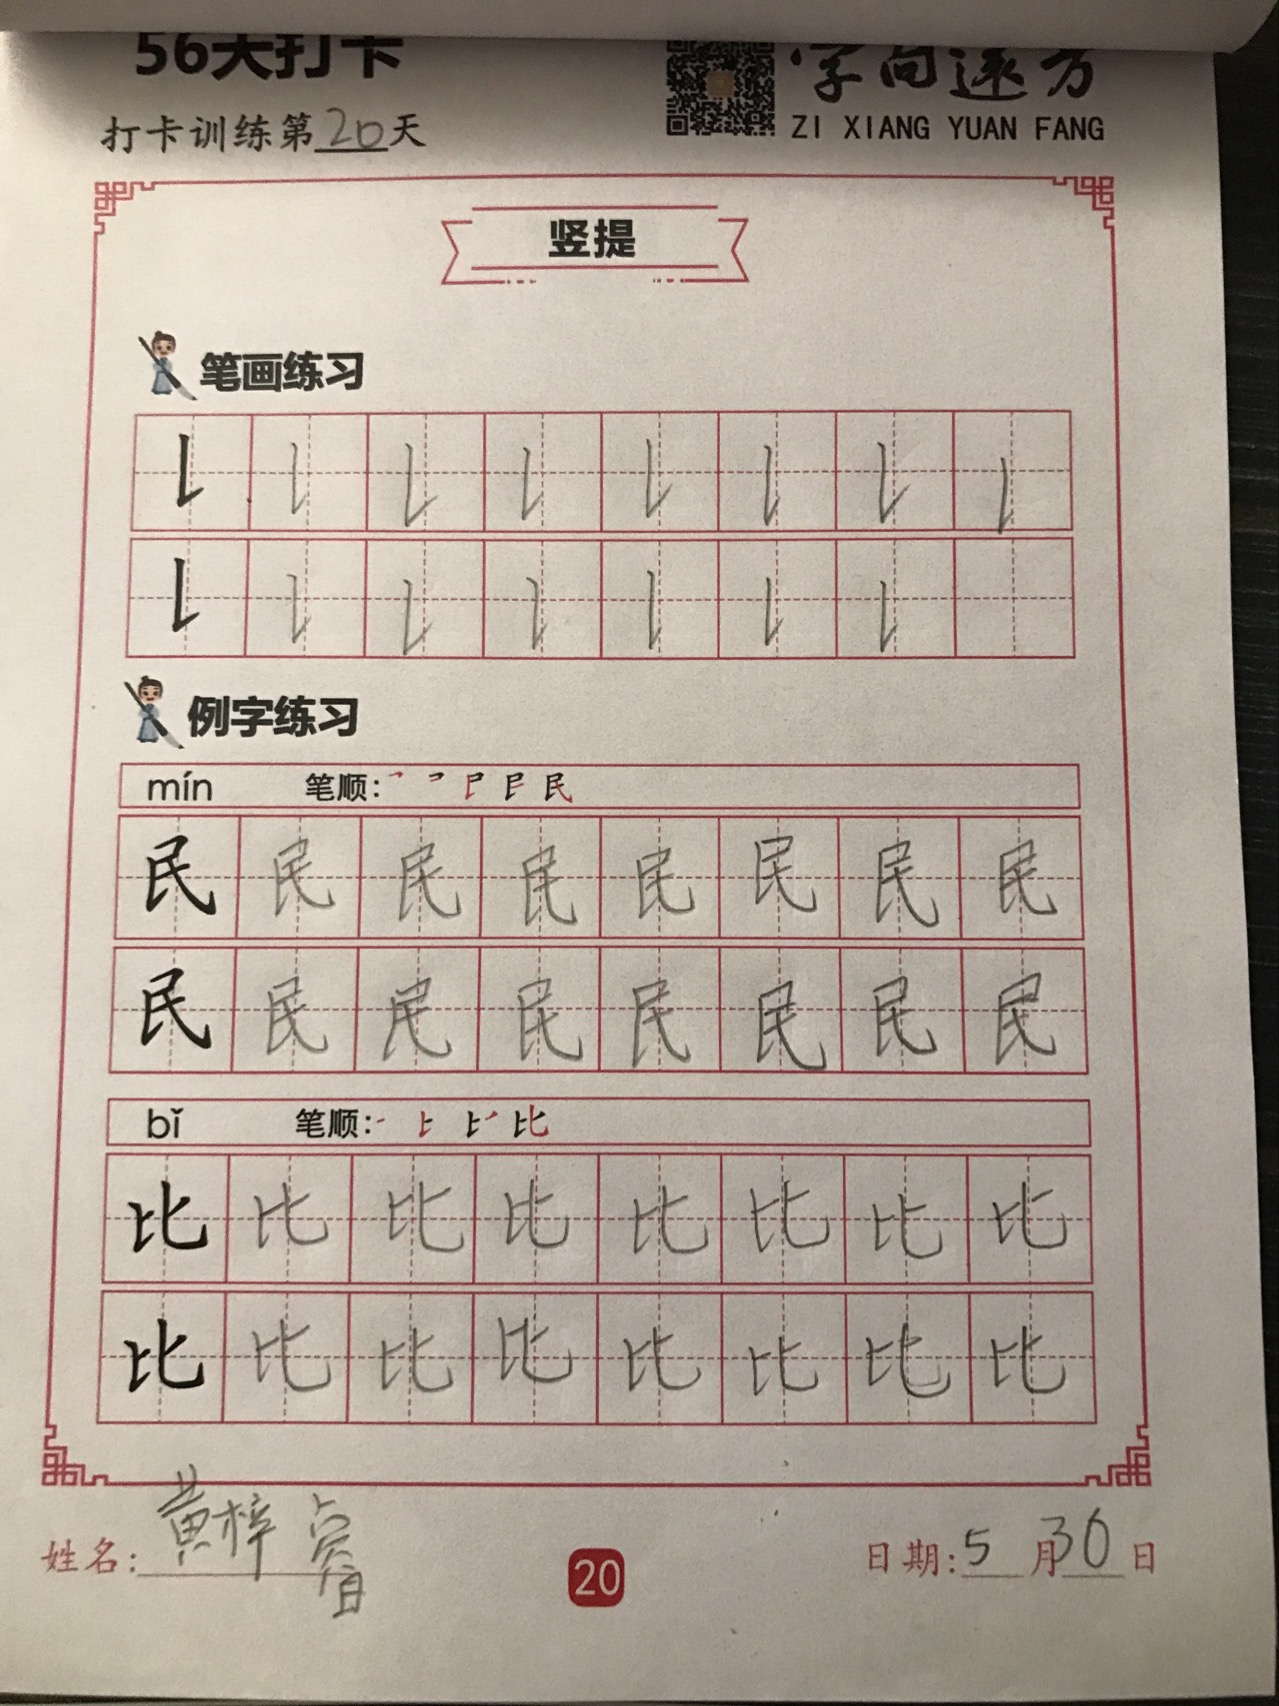 56天打卡
字向远方
打卡训练第20天
ZI XIANG YUAN FANG
竖提
笔画练习
例字练习
mín 笔顺: 民
民 民 民 民 民 民 民 民
民 民 民 民 民 民 民 民
bǐ 笔顺: 比
比 比 比 比 比 比 比 比
比 比 比 比 比 比 比 比
姓名: 黄梓睿 20 日期: 5月30日